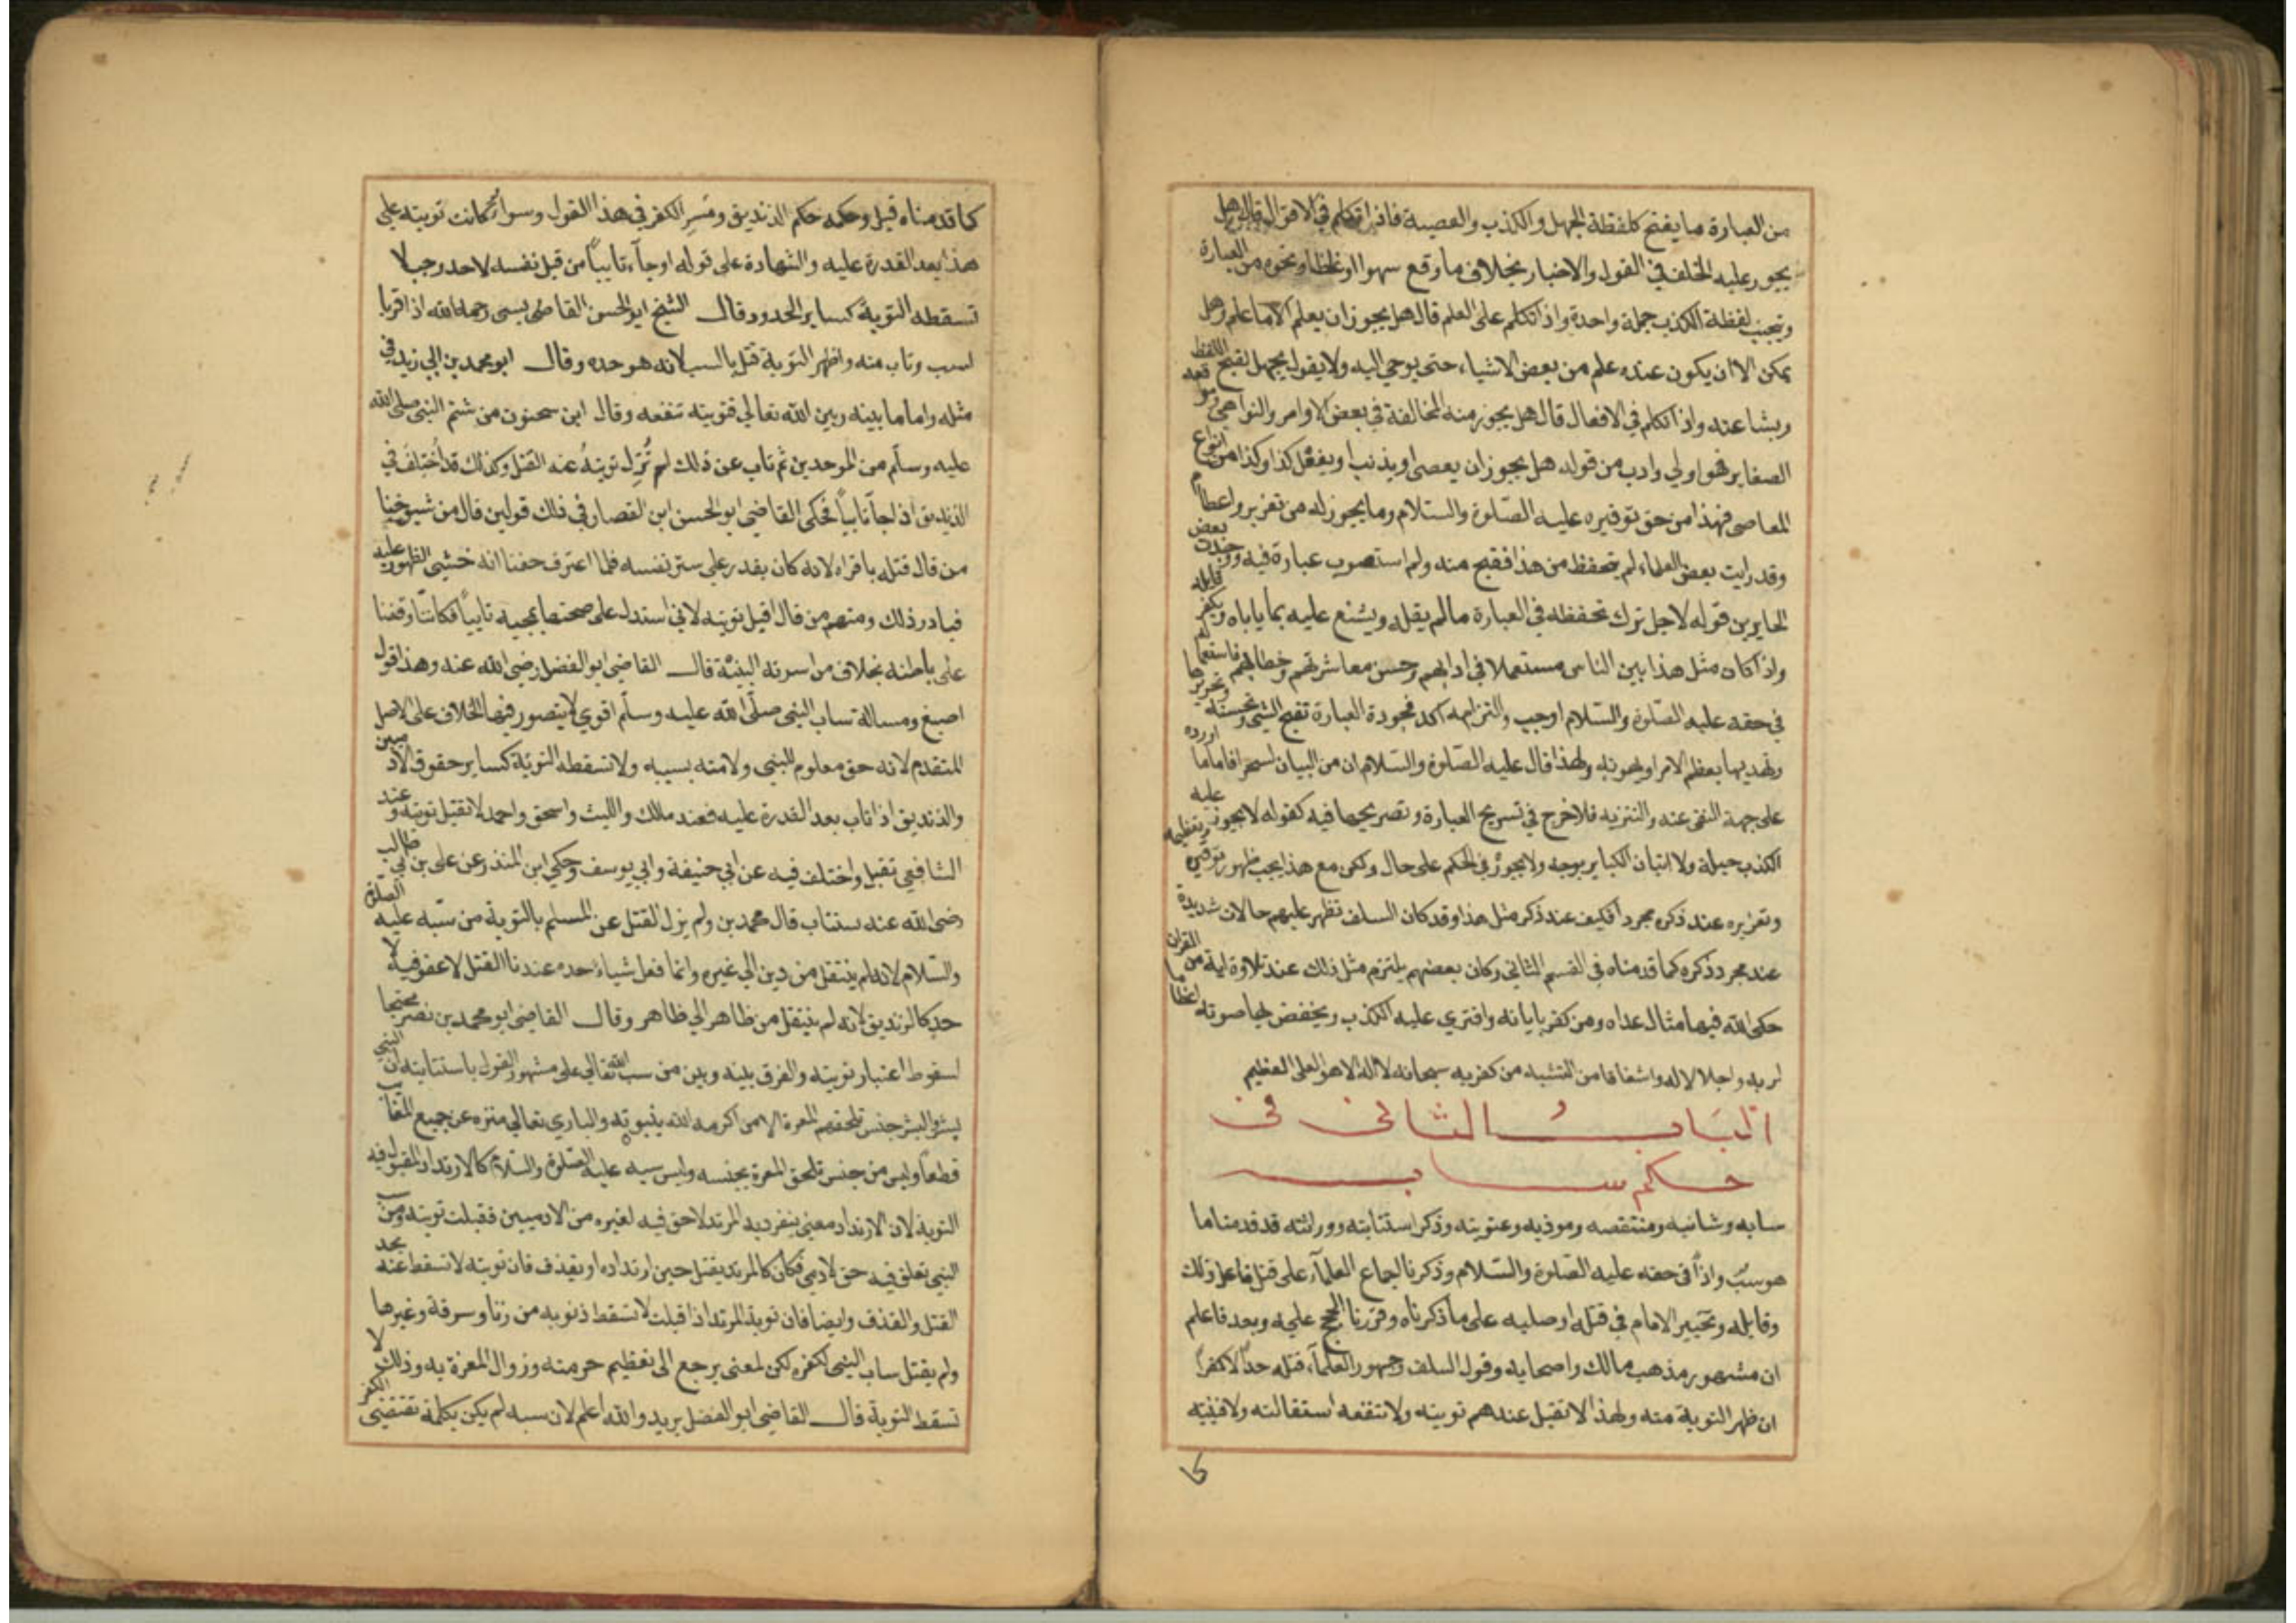 من العبارة ما يقبح كلفظة الجهل والكذب والمعصية فاذا تكلم في الاقوال قال هل
يجوز عليه الخلف في القول والاخبار بخلاف ما وقع سهوا او غلطا ونحوه من العبارة
ويجتنب لفظة الكذب جملة واحدة واذا تكلم على العلم قال هل يجوز ان يعلم الا ما علم وهل
يمكن الا ان يكون عنده علم من بعض الاشياء حتى يوحي اليه ولا يقول يجهل لقبح اللفظ
وبشاعته واذا تكلم في الافعال قال هل يجوز منه المخالفة في بعض الاوامر والنواهي ومواقعه
الصغاير فهو اولي وادب من قوله هل يجوز ان يعصي او يذنب او يفعل كذا وكذا من انواع
المعاصي فهذا من حق توقيره عليه الصلوة والسلام وما يجوز له من تعزير واعظام
وقد رايت بعض العلماء لم يتحفظ من هذا فقبح منه ولم استصوب عبارة فيه ووجدت بعض
الجايرين قوله لاجل ترك تحفظه في العبارة ما لم يقله ويشنع عليه بما ياباه ويكفر قايله
واذا كان مثل هذا بين الناس مستعملا في ادابهم وحسن معاشرتهم وخطابهم فاستعمالها
في حقه عليه الصلوة والسلام اوجب والتزامه اكد فجودة العبارة تقبح الشي وتحسنه وتحريرها
وتهذيبها يعظم الامر او يهونه ولهذا قال عليه الصلوة والسلام ان من البيان لسحرا فاما ما اورده
على جهة النفي عنه والتنزيه فلا خرج في تسريح العبارة وتصريحها فيه كقوله لا يجوز عليه
الكذب جملة ولا اتيان الكباير بوجه ولا يجوز في الحكم على حال ولكن مع هذا يجب ظهور توقيره وتعظيمه
وتعزيره عند ذكره مجردا فكيف عند ذكر مثل هذا وقد كان السلف تظهر عليهم حالات شديدة
عند مجرد ذكره كما قدمناه في القسم الثاني وكان بعضهم يلتزم مثل ذلك عند تلاوة اية من القران
حكي الله فيها مثال عداه ومن كفر باياته وافتري عليه الكذب ويخفض لها صوته اعظاما
لربه واجلالا له واشفاقا من التشبه من كفر به سبحانه لا اله الا هو العلي العظيم
الباب الثاني في
حكم سابه
سابه وشانيه ومنتقصه وموذيه وعقوبته وذكر استتابته ووراثته قد قدمنا ما
هو سب واذا في حقه عليه الصلوة والسلام وذكرنا اجماع العلماء على قتل فاعل ذلك
وقايله وتخيير الامام في قتله او صلبه على ما ذكرناه وقررنا الحجج عليه وبعد فاعلم
ان مشهور مذهب مالك واصحابه وقول السلف وجمهور العلماء قتله حدا لا كفرا
ان ظهر التوبة منه ولهذا لا تقبل عندهم توبته ولا تنفعه استقالته ولا فيئته
كا
كما قدمناه قبل وحكمه حكم الزنديق ومسر الكفر في هذا القول وسوا كانت توبته على
هذا بعد القدرة عليه والشهادة على قوله او جاء تايبا من قبل نفسه لا حد وجب لا
تسقطه التوبة كساير الحدود قال الشيخ ابو الحسن القاضي بسي رحمه الله اذا اقر با
لسب وتاب منه واظهر التوبة قتل بالسب لانه هو حده وقال ابو محمد بن ابي زيد في
مثله واما ما بينه وبين الله تعالي فتوبته تنفعه وقال ابن سحنون من شتم النبي صلى الله
عليه وسلم من الموحدين ثم تاب عن ذلك لم تزل توبته عنه القتل وكذلك قد اختلف في
الزنديق اذا جا تايبا فحكى القاضي ابو الحسن ابن القصار في ذلك قولين قال من شيوخنا
من قال قتله باقراره لانه كان يقدر على ستر نفسه فلما اعترف خفنا انه خشي الظهور عليه
فبادر ذلك ومنهم من قال اقبل توبته لاني استدل على صحتها بمجيه تايبا فكاننا وقفنا
على باطنه بخلاف من اسرته البينة قال القاضي ابو الفضل رضي الله عنه وهذا قول
اصبغ ومسالة تساب النبي صلى الله عليه وسلم اقوي لا يتصور فيها الخلاف على الاصل
المتقدم لانه حق معلوم للنبي ولامته بسببه ولا تسقطه التوبة كساير حقوق الادميين
والزنديق اذا تاب بعد القدرة عليه فعند مالك والليث واسحق واحمد لا تقبل توبته وعند
الشافعي تقبل واختلف فيه عن ابي حنيفة وابي يوسف وحكي ابن المنذر عن علي بن ابي طالب
رضي الله عنه يستتاب قال محمد بن ولم يزل القتل عن المسلم بالتوبة من سبه عليه الصلوة
والسلام لانه لم ينتقل من دين الي غيره وانما فعل شياء حده عندنا القتل لا عفو فيه لا
حد كالزنديق لانه لم ينتقل من ظاهر الي ظاهر وقال القاضي ابو محمد بن نصر محتجا
لسقوط اعتبار توبته والفرق بينه وبين من سب الله تعالي على مشهور القول باستتابته ان النبي
بشر والبشر جنس تلحقهم المعرة الا من اكرمه الله بنبوته والباري تعالي منزه عن جميع المعايب
قطعا وليس من جنس تلحق المعرة بجنسه وليس سبه عليه الصلوة والسلام كالارتداد المقبول فيه
التوبة لان الارتداد معني ينفرد به المرتد لا حق فيه لغيره من الادميين فقبلت توبته ومن سب
النبي تعلق فيه حق لادمي فكان كالمرتد يقتل حين ارتداده او يقذف فان توبته لا تسقط عنه حد
القتل والقذف وايضا فان توبة المرتد اذا قبلت لا تسقط ذنوبه من زنا وسرقة وغيرها
ولم يقتل ساب النبي لكفره لكن لمعني يرجع الى تعظيم حرمته وزوال المعرة به وذلك لا
تسقط التوبة قال القاضي ابو الفضل يريد والله اعلم لان سبه لم يكن بكلمة تقتضي الكفر